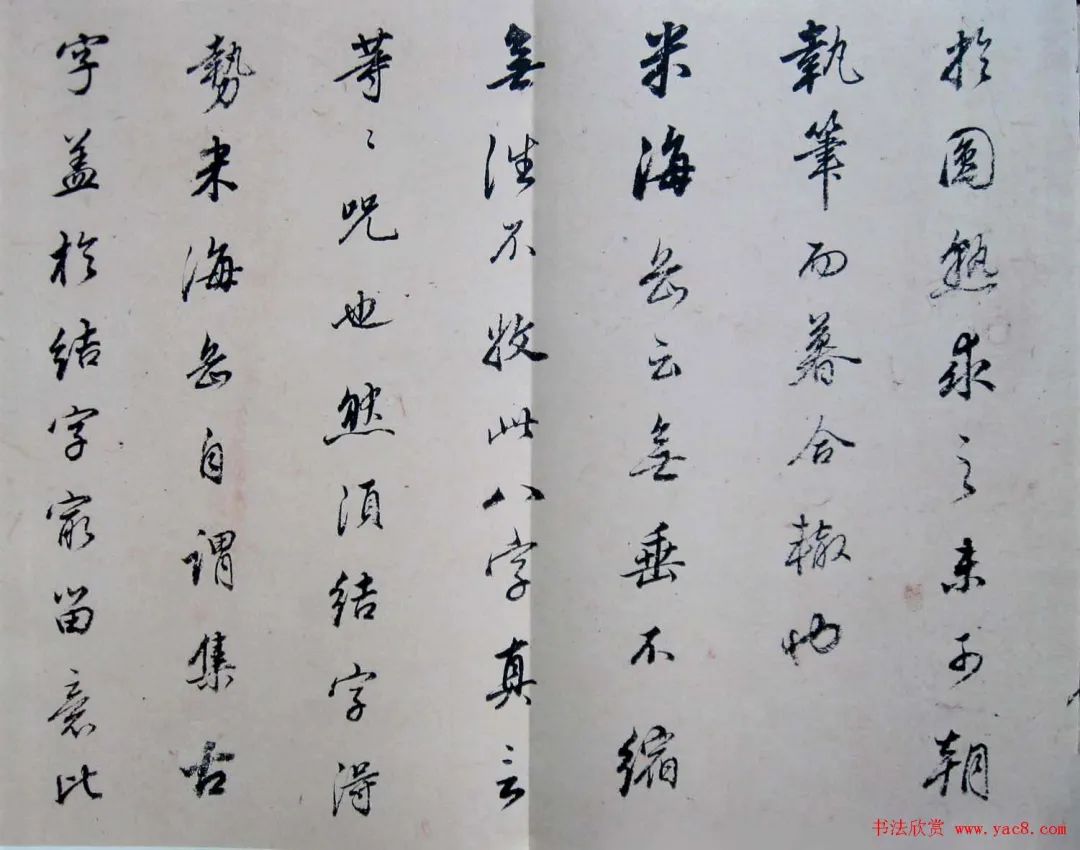 於圓熟求之未可朝
執筆而暮合轍也
米海岳云無垂不縮
無往不收此八字真言
等〻咒也然須結字得
勢米海岳自謂集古
字盖於結字最留意比
书法欣赏 www.yac8.com